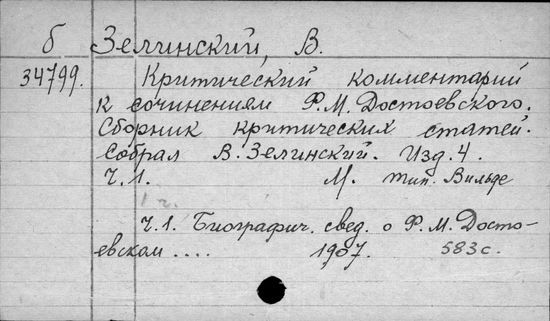 б Зелинский, В.
34799. Критический комментарий
к сочинениям Ф.М. Достоевского.
Сборник критических статей.
Собрал В. Зелинский. Изд. 4.
Ч.1. М. тип. Вильде
1 ч.
Ч.1. Биографич. свед. о Ф.М. Досто-
евском .... 1907. 583 с.